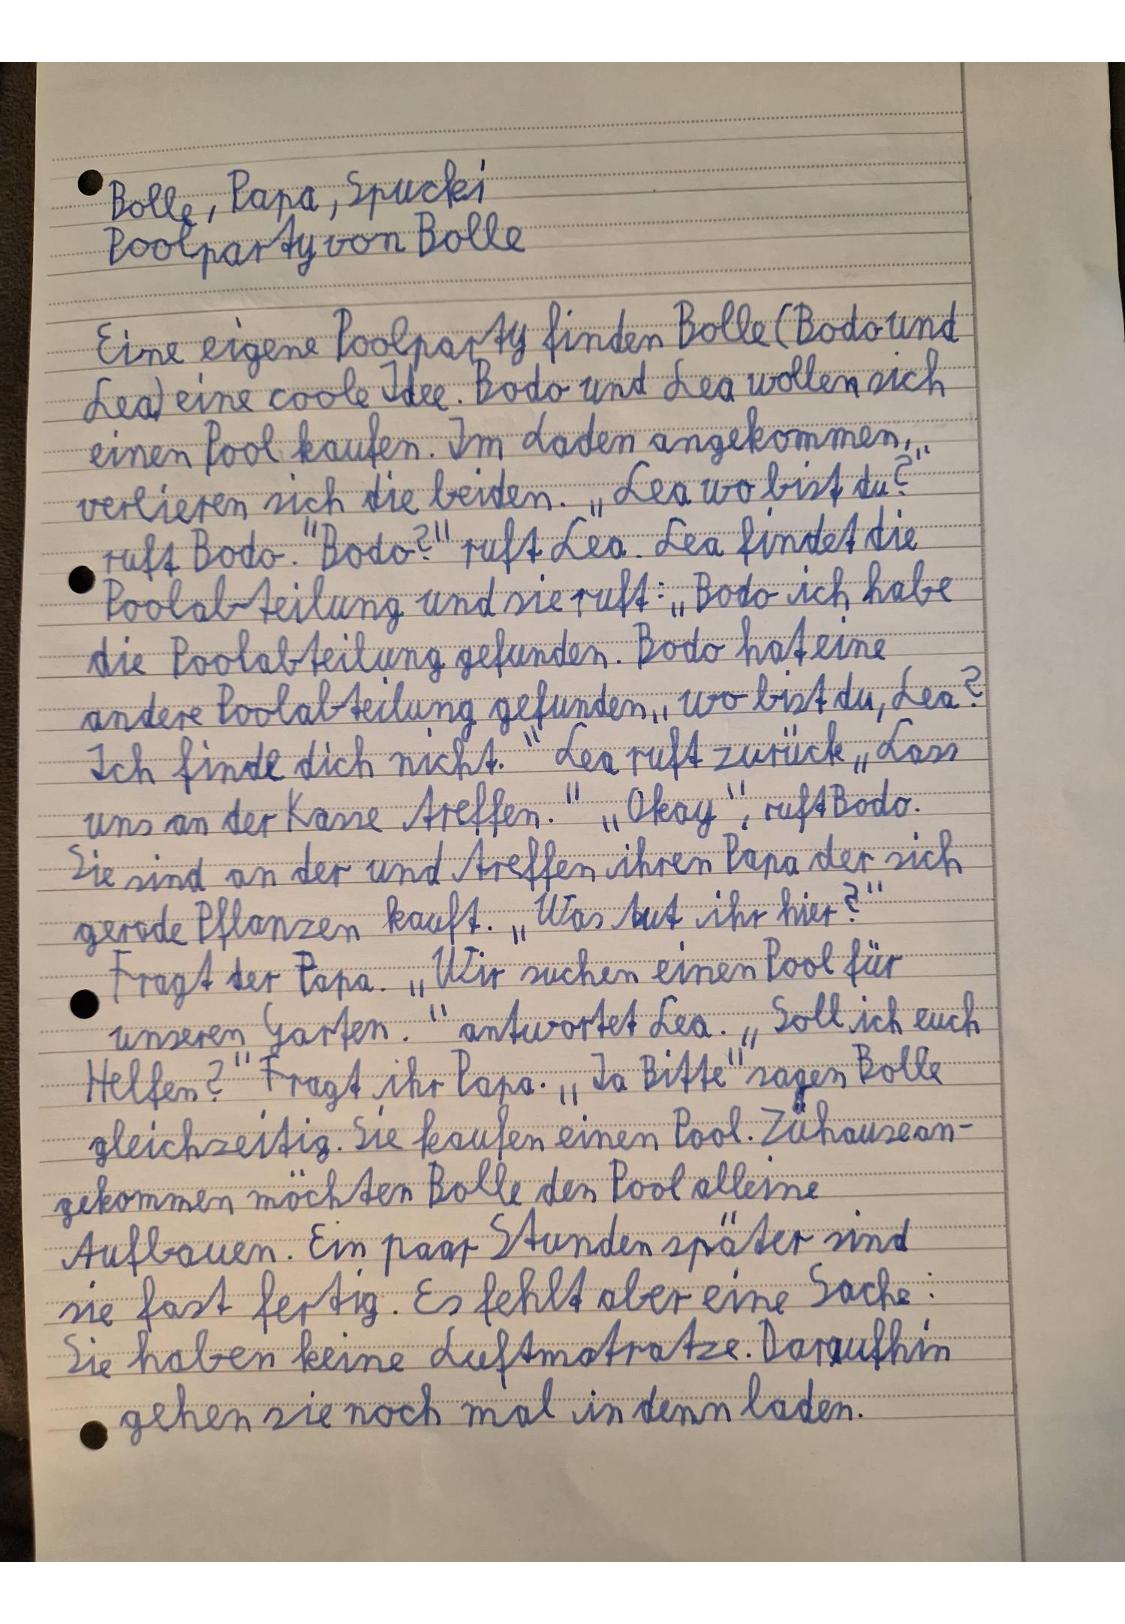 Bolle, Papa, Spucki
Poolparty von Bolle
Eine eigene Poolparty finden Bolle (Bodo und
Lea) eine coole Idee. Bodo und Lea wollen sich
einen Pool kaufen. Im Laden angekommen,
verlieren sich die beiden. „Lea wo bist du?"
ruft Bodo. "Bodo?" ruft Lea. Lea findet die
Poolabteilung und sie ruft: „Bodo ich habe
die Poolabteilung gefunden. Bodo hat eine
andere Poolabteilung gefunden „wo bist du, Lea?
Ich finde dich nicht." Lea ruft zurück „Lass
uns an der Kasse treffen." „Okay", ruft Bodo.
Sie sind an der und treffen ihren Papa der sich
gerade Pflanzen kauft. „Was tut ihr hier?"
Fragt der Papa. „Wir suchen einen Pool für
unseren Garten." antwortet Lea. „Soll ich euch
Helfen?" Fragt ihr Papa. „Ja Bitte" sagen Bolle
gleichzeitig. Sie kaufen einen Pool. Zuhause an-
gekommen möchten Bolle den Pool alleine
Aufbauen. Ein paar Stunden später sind
sie fast fertig. Es fehlt aber eine Sache:
Sie haben keine Luftmatratze. Daraufhin
gehen sie noch mal in denn laden.